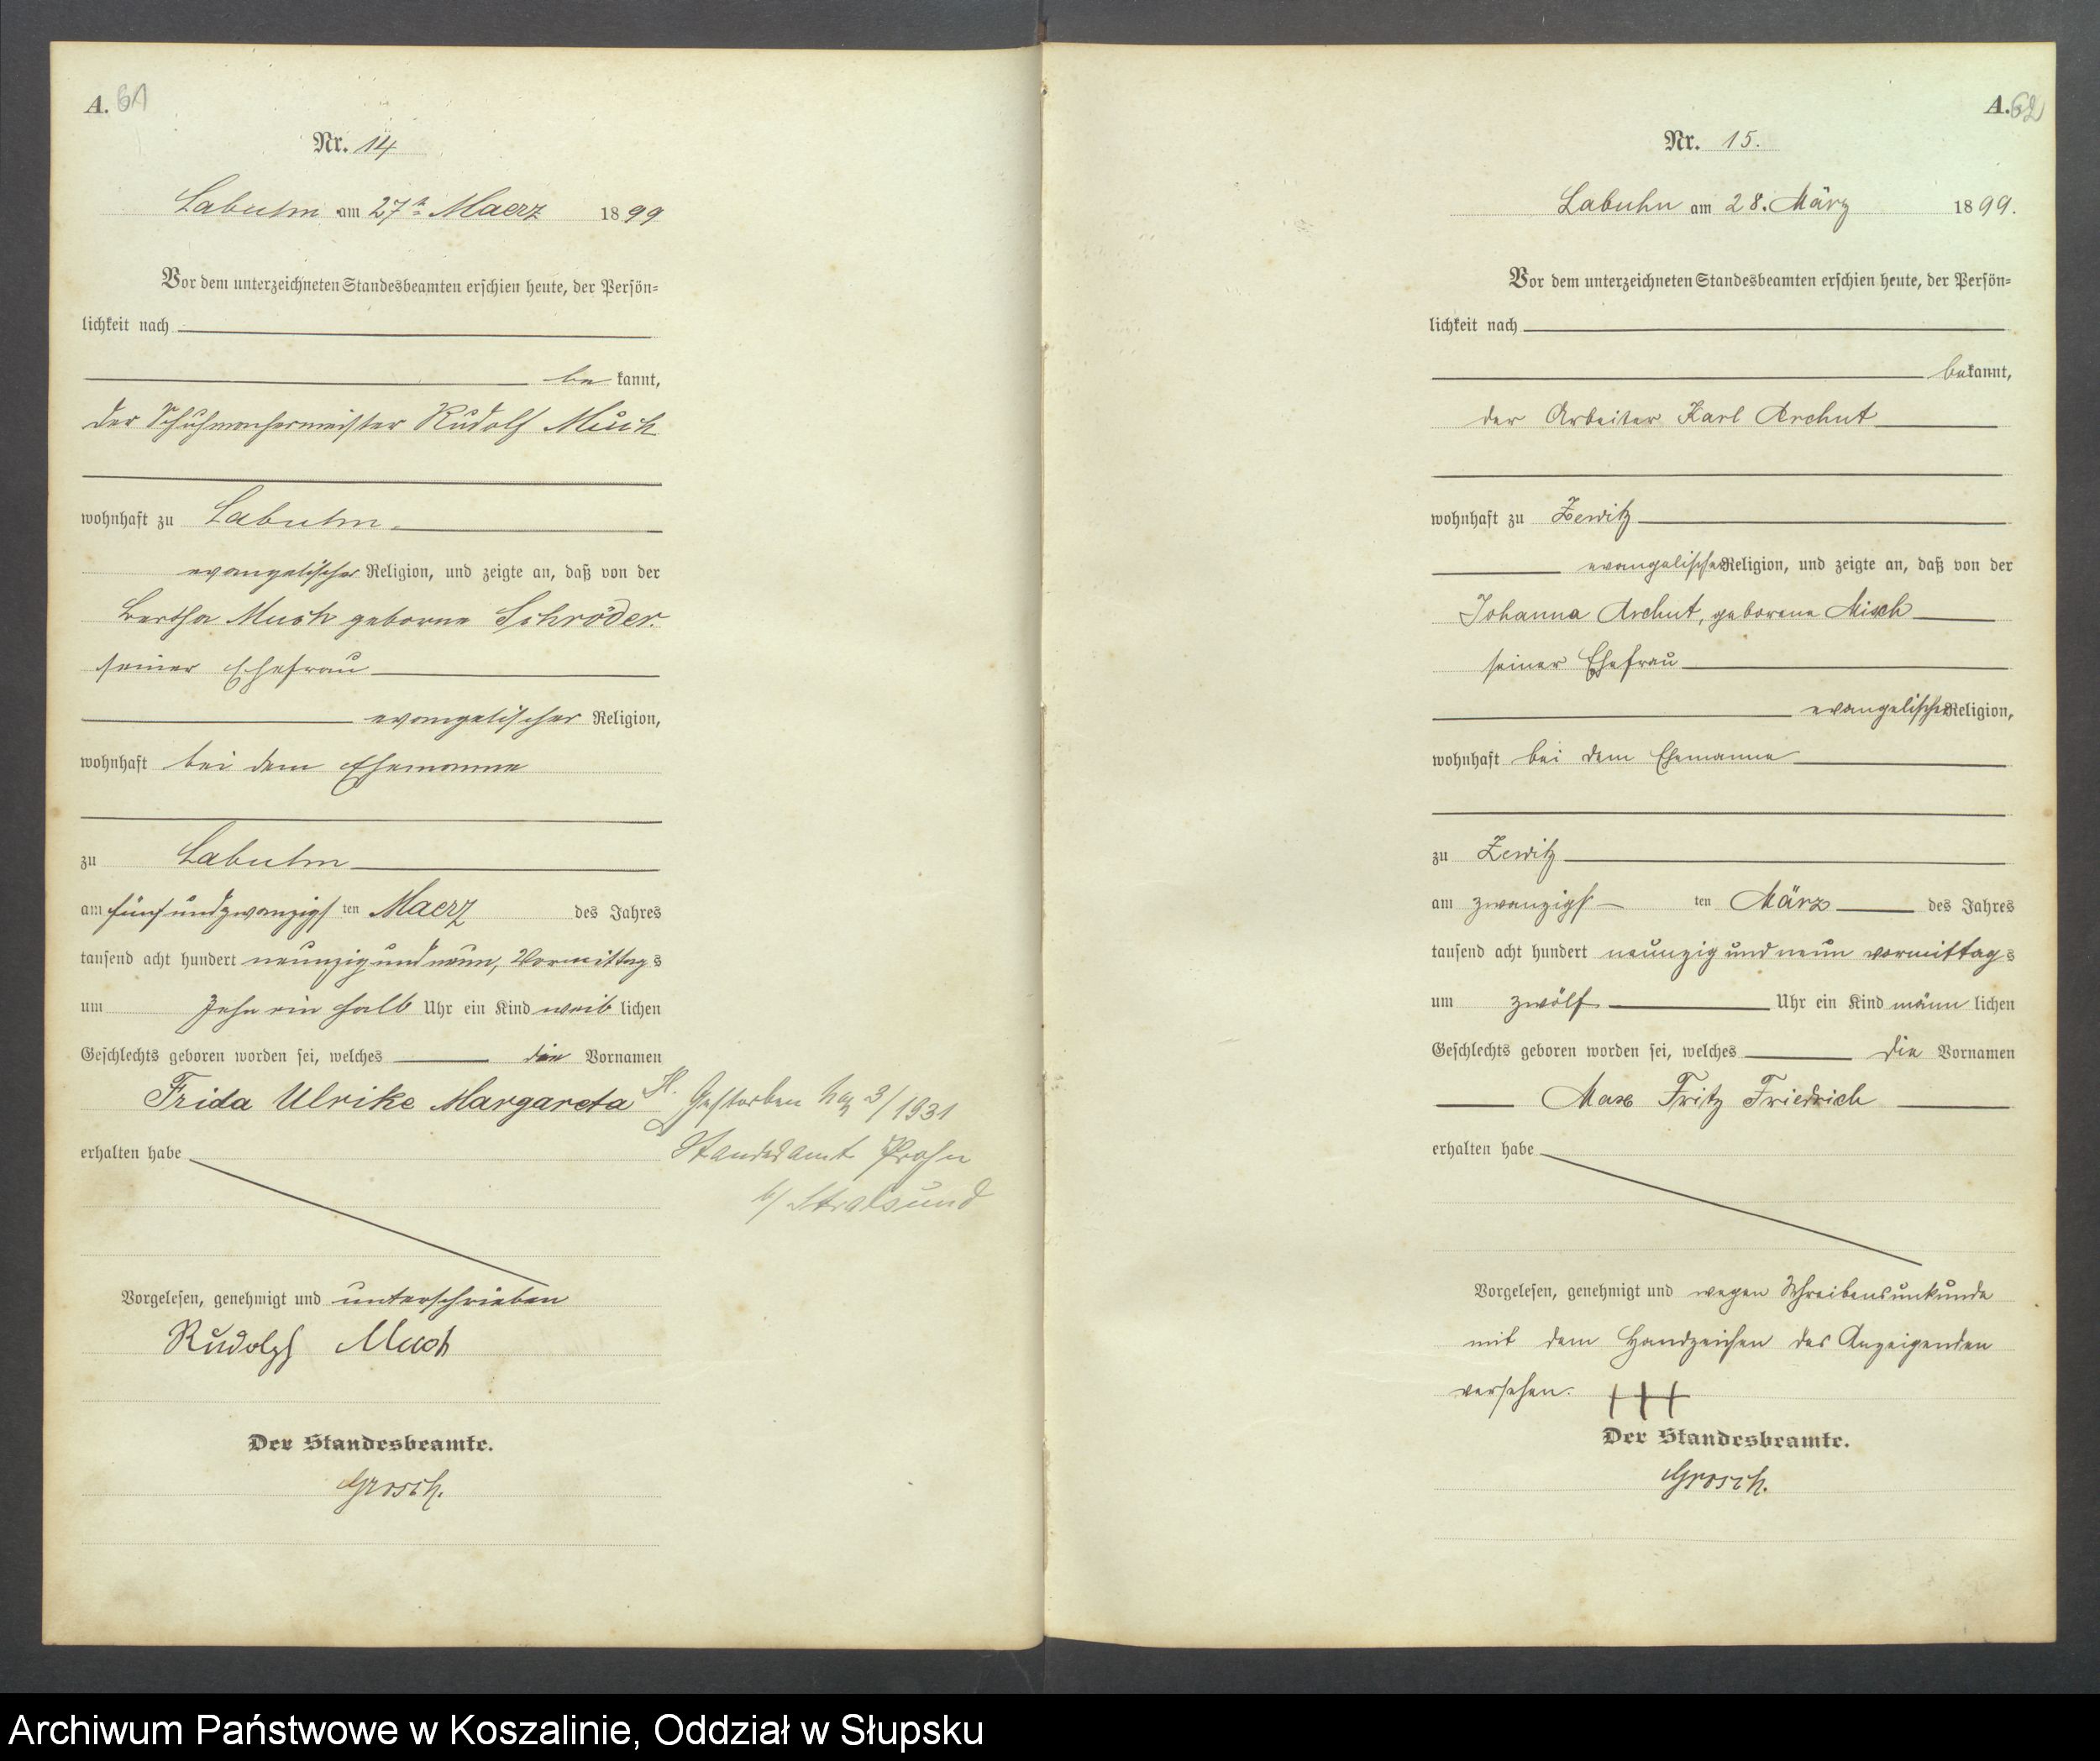 A. 61
Nr. 14
Labuhn am 27ten Maerz 1899
Vor dem unterzeichneten Standesbeamten erschien heute, der Persön-
lichkeit nach
be kannt,
der Schuhmachermeister Rudolf
wohnhaft zu Labuhn
evangelischer Religion, und zeigte an, daß von der
Bertha geborne Schröder
seiner Ehefrau
evangelischer Religion,
wohnhaft bei dem Ehemanne
zu Labuhn
am fünfundzwanzigs ten Maerz des Jahres
tausend acht hundert neunzig und neun, Vormittags
um Zehn ein halb Uhr ein Kind weib lichen
Geschlechts geboren worden sei, welches die Vornamen
Frida Ulrike Margareta
erhalten habe
Vorgelesen, genehmigt und unterschrieben
Rudolph
Der Standesbeamte.
Grosch.
H. Gestorben 3/1931
Standesamt Prohn
b/ Stralsund
A. 62
Nr. 15.
Labuhn am 28. März 1899.
Vor dem unterzeichneten Standesbeamten erschien heute, der Persön-
lichkeit nach
bekannt,
der Arbeiter Karl Archut
wohnhaft zu Zewitz
evangelischer Religion, und zeigte an, daß von der
Johanna Archut, geborene Misch
seiner Ehefrau
evangelischer Religion,
wohnhaft bei dem Ehemanne
zu Zewitz
am zwanzigs ten März des Jahres
tausend acht hundert neunzig und neun vormittags
um zwölf Uhr ein Kind männ lichen
Geschlechts geboren worden sei, welches die Vornamen
Max Fritz Friedrich
erhalten habe
Vorgelesen, genehmigt und wegen Schreibensunkunde
mit dem Handzeichen des Anzeigenden
versehen. +++
Der Standesbeamte.
Grosch.
Archiwum Państwowe w Koszalinie, Oddział w Słupsku